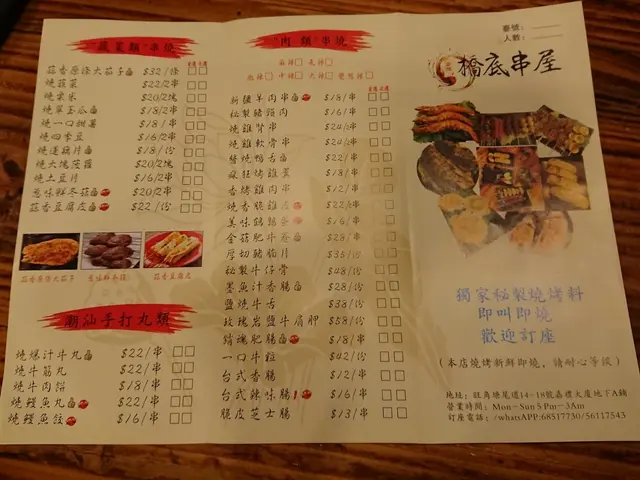 "蔬菜類"串燒
蒜香原條大茄子 $32/條
燒韮菜 $22/2串
燒粟米 $20/2塊
燒翠玉瓜 $18/2串
燒一口椒薯 $18/串
燒四季豆 $16/2串
燒蓮藕片 $18/份
燒大塊茨菇 $20/2塊
燒土豆片 $16/2串
惹味鮮冬菇 $20/2串
蒜香豆腐皮 $22/份
蒜香原條大茄子
惹味鮮冬菇
蒜香豆腐皮
潮汕手打丸類
燒爆汁牛丸 $22/串
燒牛筋丸 $22/串
燒牛肉餡 $18/串
燒鰻魚丸 $22/串
燒鰻魚餃 $16/串
"肉類"串燒
麻辣 走辣
微辣 中辣 大辣 變態辣
新疆羊肉串 $18/串
秘製豬頸肉 $16/串
燒雞腎串 $24/2串
燒雞軟骨串 $24/2串
醬燒鴨舌 $22/串
瘋狂烤雞翼 $18/串
香烤雞肉串 $12/串
燒香脆雞皮 $22/2串
美味鵪鶉 $16/
金菇肥牛卷 $28/串
厚切豬腩片 $35/
秘製牛仔骨 $48/份
墨魚汁香腸 $28/份
鹽燒牛舌 $38/份
玫瑰岩鹽牛肩胛 $58/份
豬肥腸 $18/串
一口牛粒 $42/份
台式香腸 $12/串
台式辣味腸 $16/串
脆皮芝士腸 $13/串
臺號:
人數:
橋底串屋
獨家秘製燒烤料
即叫即燒
歡迎訂座
(本店燒烤新鮮即燒,請耐心等候)
地址: 旺角塘尾道14-18號嘉禮大廈地下A鋪
營業時間: Mon-Sun 5 Pm-3Am
訂座電話: /whatsAPP:68517730/56117543